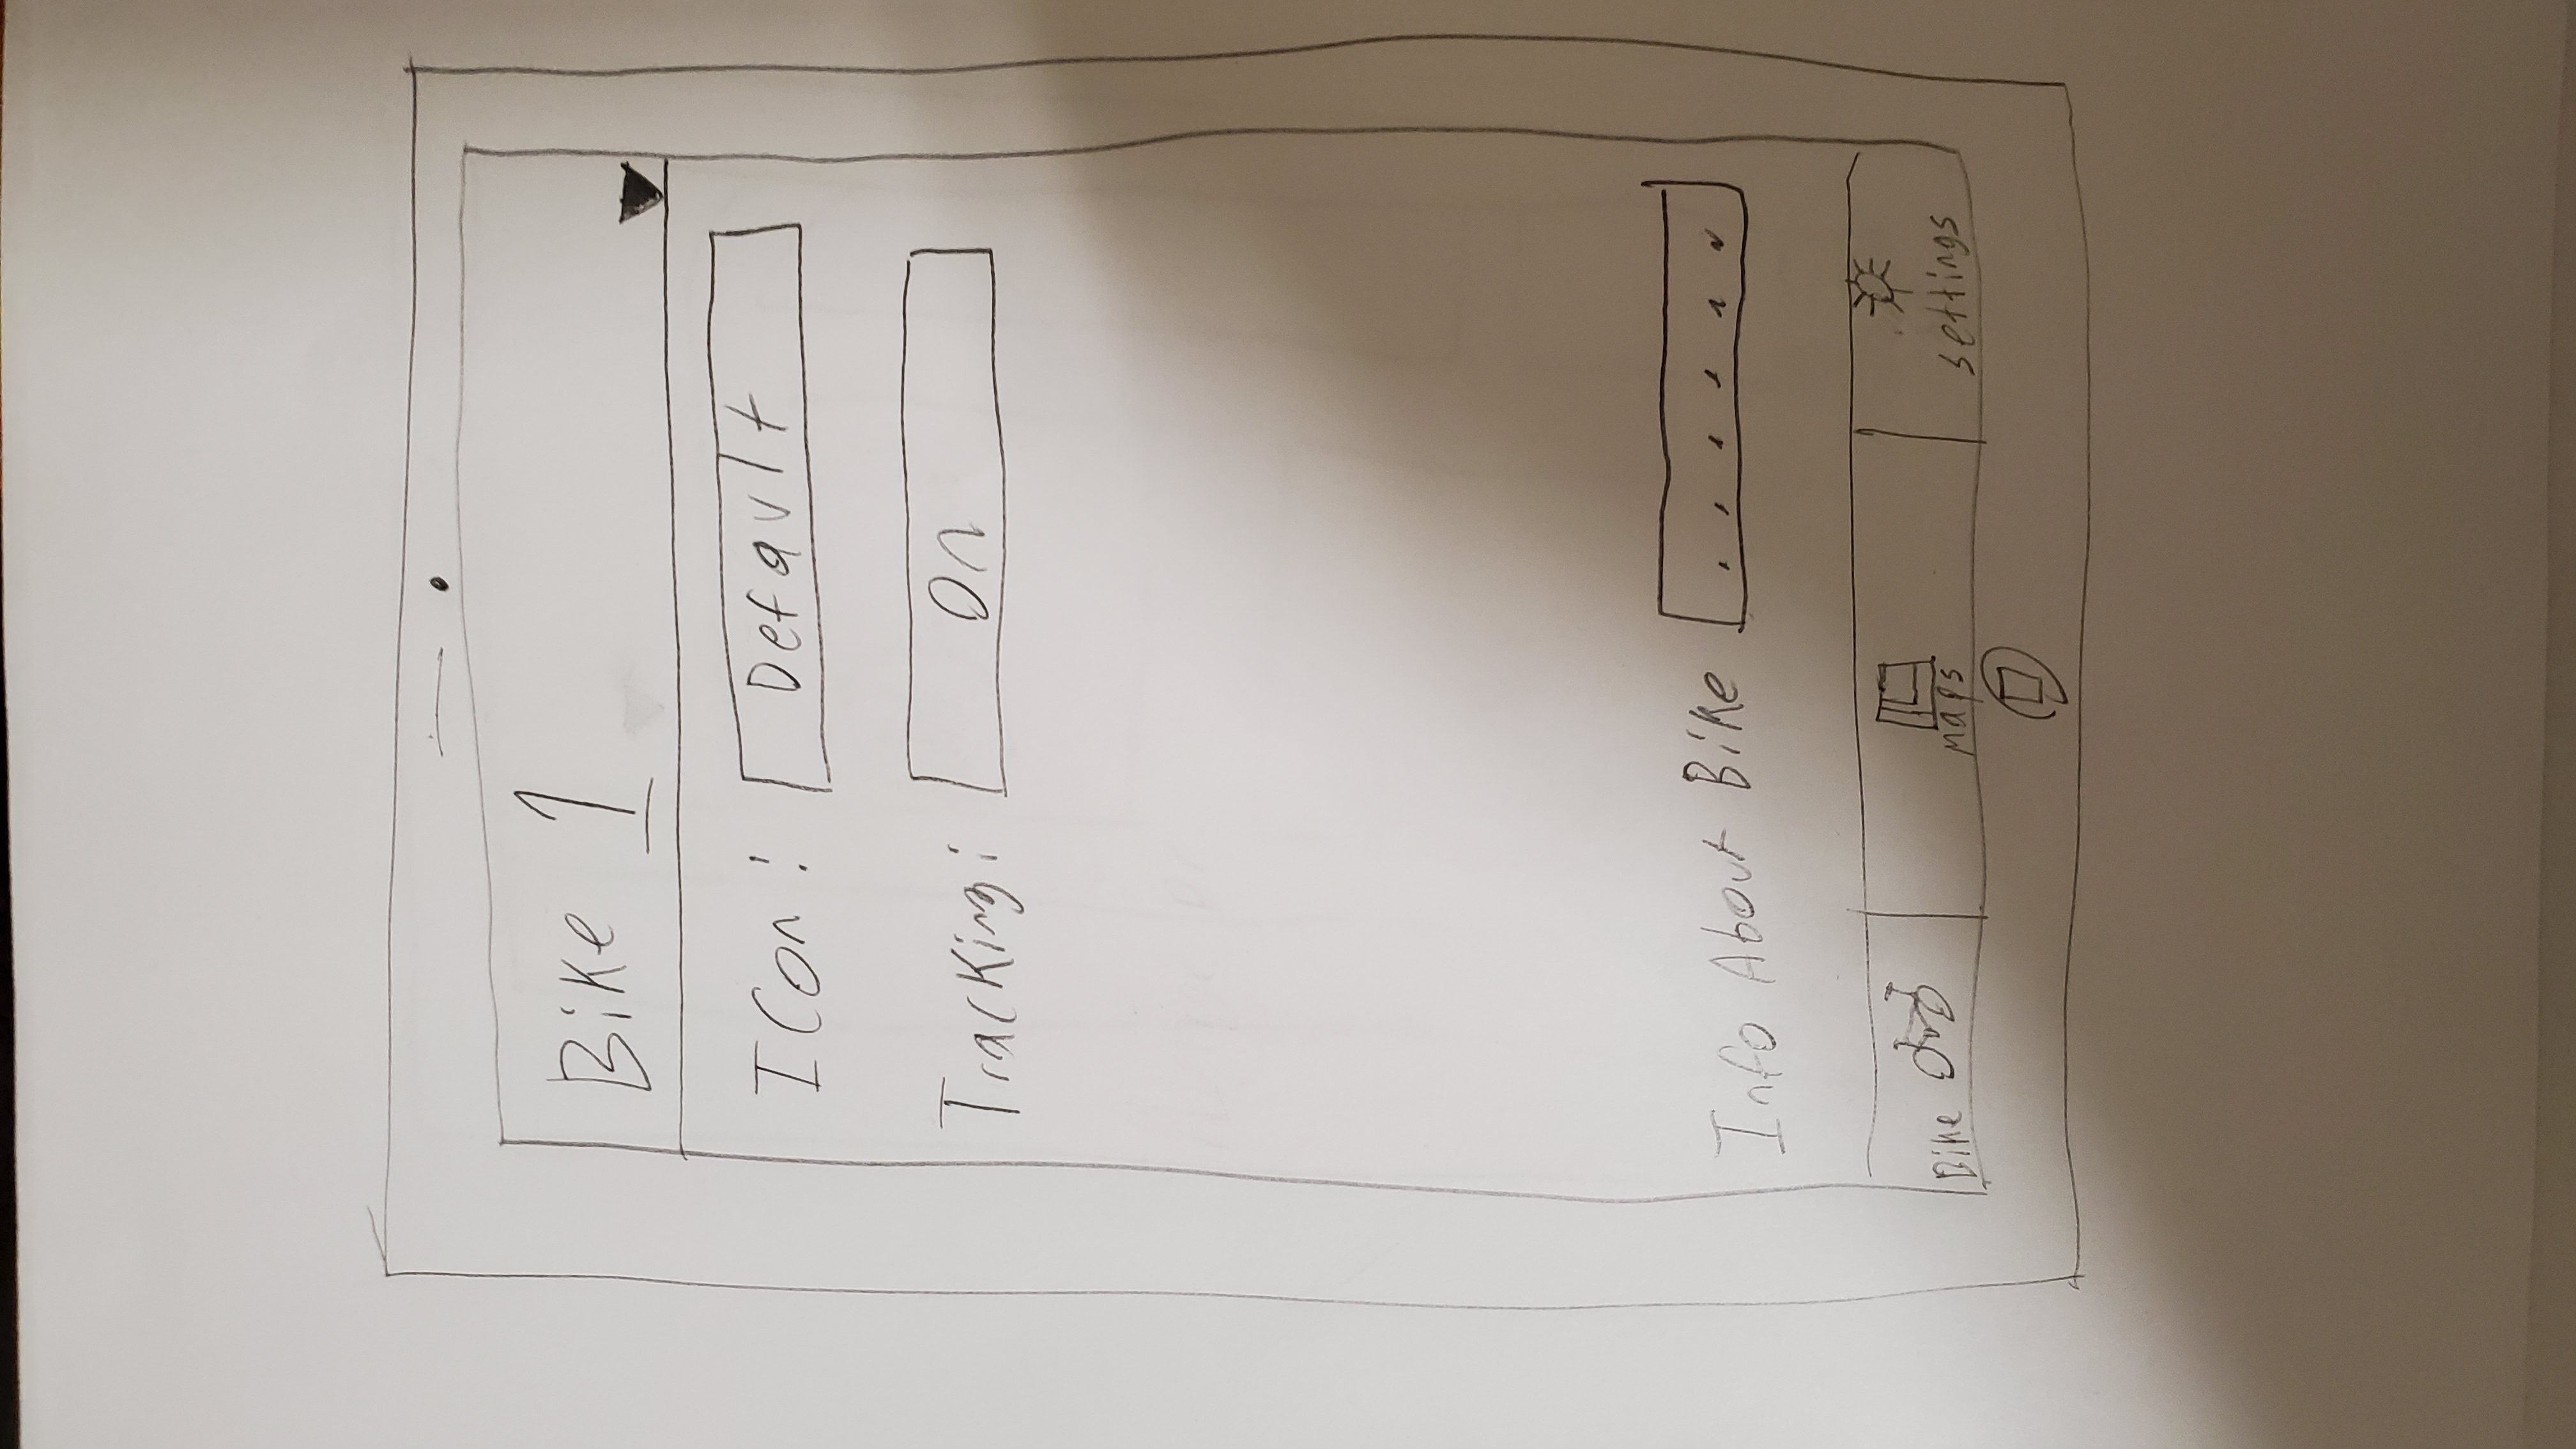 Bike 1
Icon: Default
Tracking: On
Info About Bike ......
Bike
Maps
settings